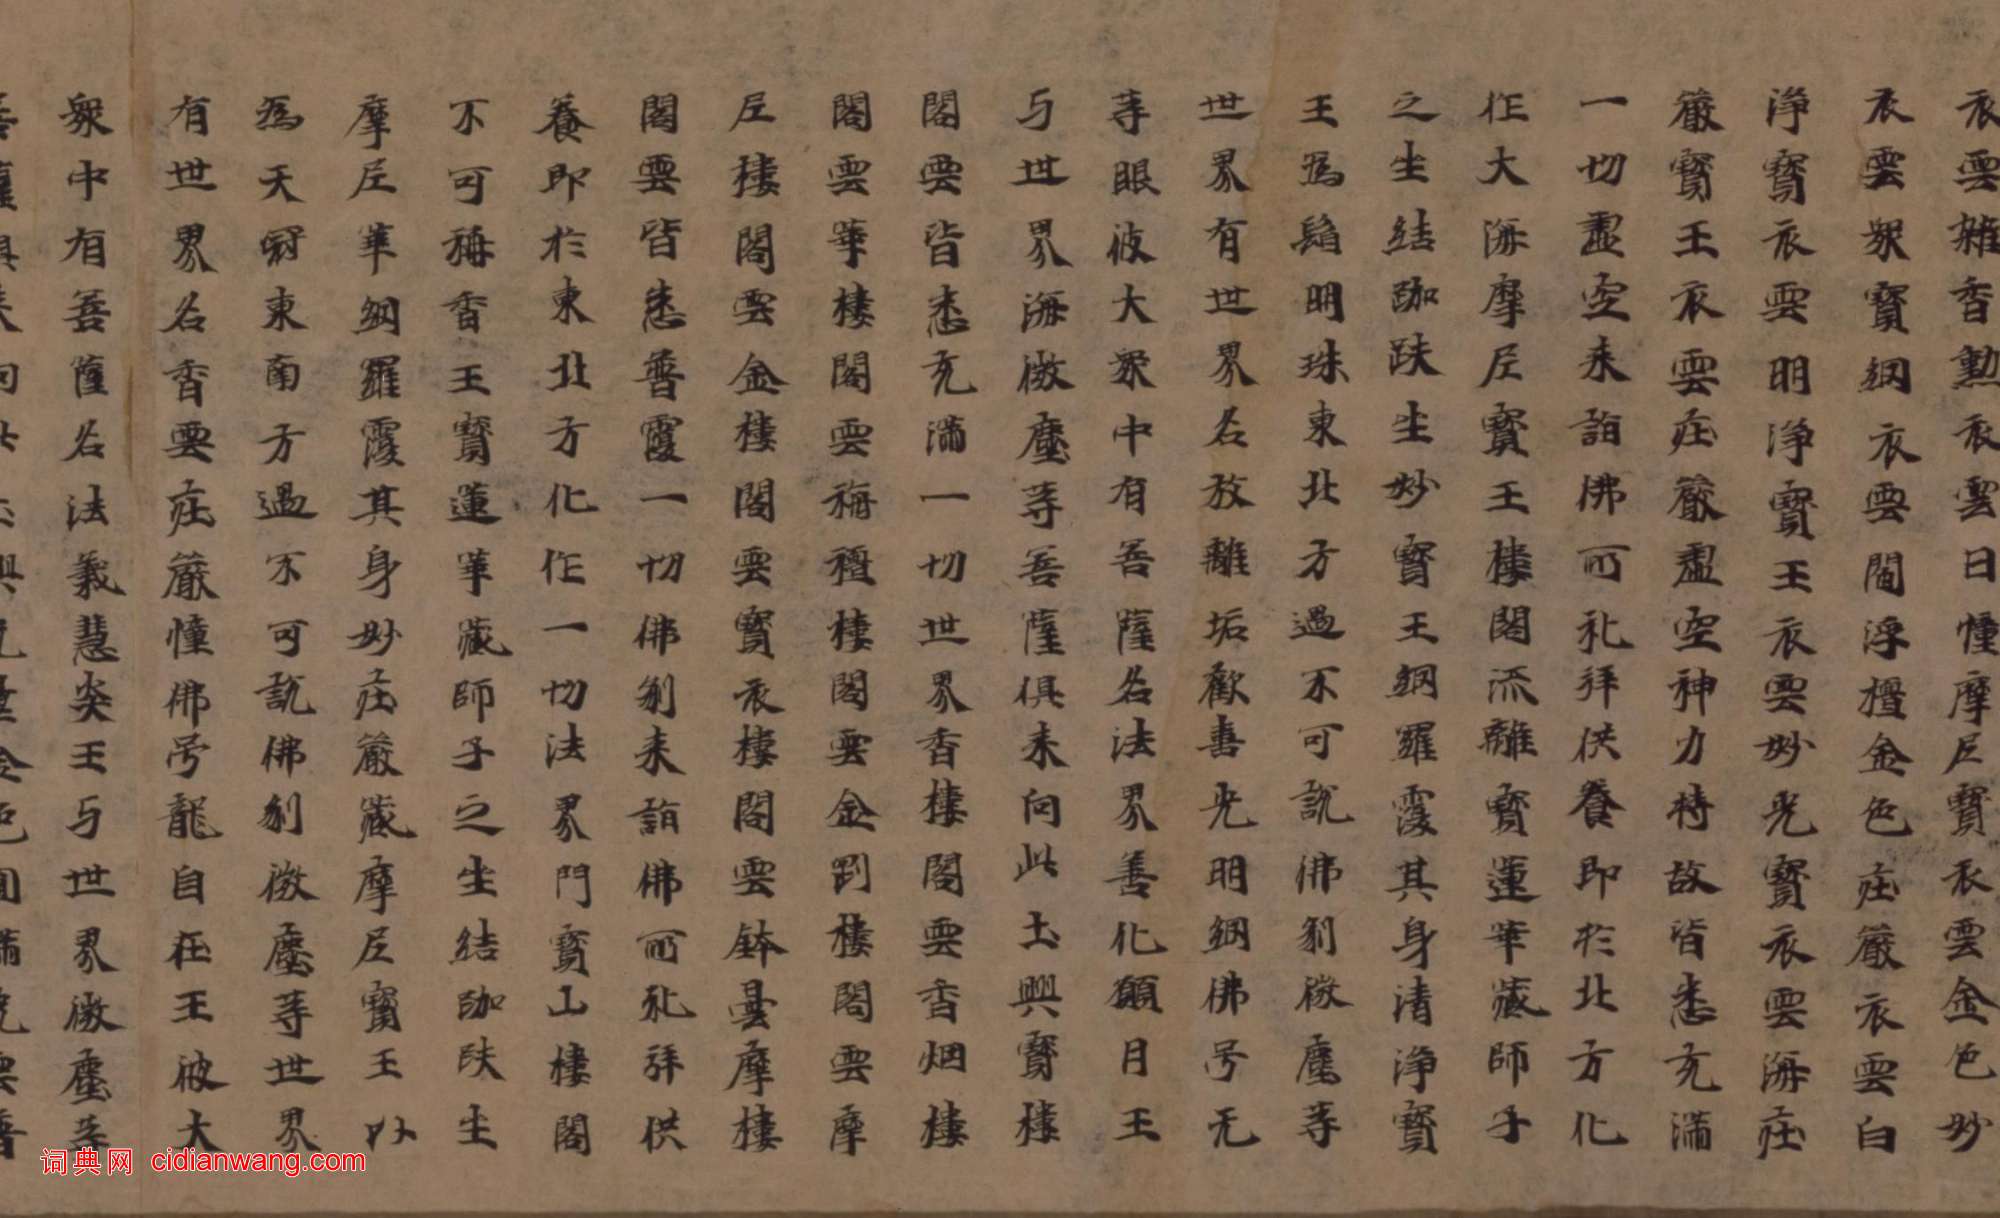 衣雲雜香勲衣雲日幢摩尼寶衣雲金色妙
衣雲衆寶網衣雲閻浮檀金色莊嚴衣雲白
浄寶衣雲明浄寶王衣雲妙光寶衣雲海莊
嚴寶王衣雲莊嚴虛空神力持故皆悉充滿
一切虛空来詣佛所礼拜供養即於北方化
作大海摩尼寶王樓閣流離寶蓮華藏師子
之坐結跏趺坐妙寶王網羅覆其身清浄寶
王爲髻明珠東北方過不可說佛刹微塵等
世界有世界名放離垢歡喜光明網佛号无
等眼彼大衆中有菩薩名法界善化願月王
与世界海微塵等菩薩俱来向此土興寶樓
閣雲皆悉充滿一切世界香樓閣雲香烟樓
閣雲華樓閣雲栴檀樓閣雲金剛樓閣雲摩
尼樓閣雲金樓閣雲寶衣樓閣雲鉢曇摩樓
閣雲皆悉普覆一切佛刹来詣佛所礼拜供
養即於東北方化作一切法界門寶山樓閣
不可稱香王寶蓮華藏師子之坐結跏趺坐
摩尼華網羅覆其身妙莊嚴藏摩尼寶王以
爲天冠東南方過不可說佛刹微塵等世界
有世界名香雲莊嚴幢佛号龍自在王彼大
衆中有菩薩名法義慧炎王与世界微塵等
菩薩俱来向此土興兜金色圓滿光雲普
词典网 cidianwang.com